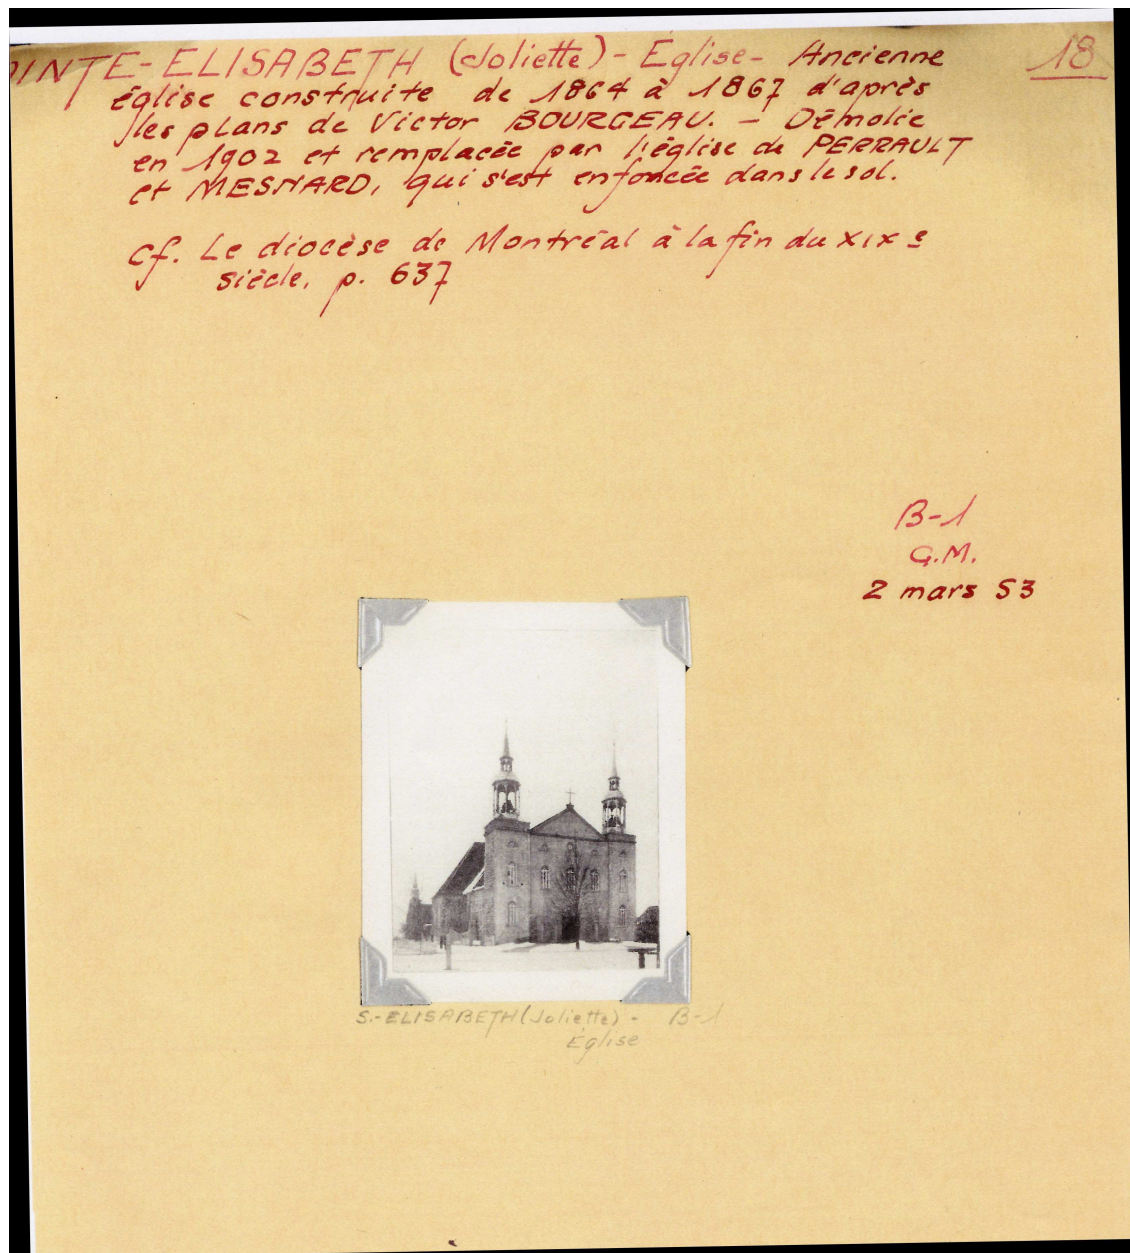 INTE-ELISABETH (Joliette) - Église - Ancienne
18
église construite de 1864 à 1867 d'après
les plans de Victor BOURGEAU. - Démolie
en 1902 et remplacée par l'église de PERRAULT
et MESNARD, qui s'est enfoncée dans le sol.
Cf. Le diocèse de Montréal à la fin du XIXe
siècle, p. 637
B-1
G.M.
2 mars 53
S.-ELISABETH (Joliette) - B-1
Église